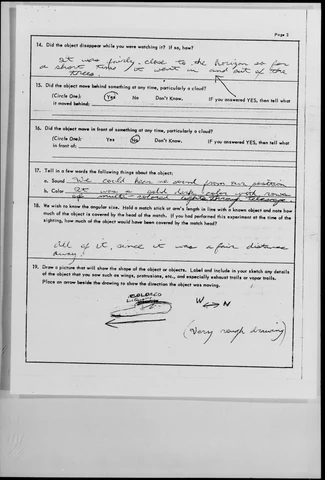 Page 3
14. Did the object disappear while you were watching it? If so, how?
It was fairly close to the horizon so for
a short time it went in and out of the
trees.
15. Did the object move behind something at any time, particularly a cloud?
(Circle One): Yes No Don't Know. IF you answered YES, then tell what
it moved behind:
16. Did the object move in front of something at any time, particularly a cloud?
(Circle One): Yes No Don't Know. IF you answered YES, then tell what
in front of:
17. Tell in a few words the following things about the object:
a. Sound We could hear no sound from our position
b. Color It was a solid dark color with rows
of multi-colored lights through telescope
18. We wish to know the angular size. Hold a match stick at arm's length in line with a known object and note how
much of the object is covered by the head of the match. If you had performed this experiment at the time of the
sighting, how much of the object would have been covered by the match head?
All of it, since it was a fair distance
away!
19. Draw a picture that will show the shape of the object or objects. Label and include in your sketch any details
of the object that you saw such as wings, protrusions, etc., and especially exhaust trails or vapor trails.
Place an arrow beside the drawing to show the direction the object was moving.
COLORED
W N
(Very rough drawing)